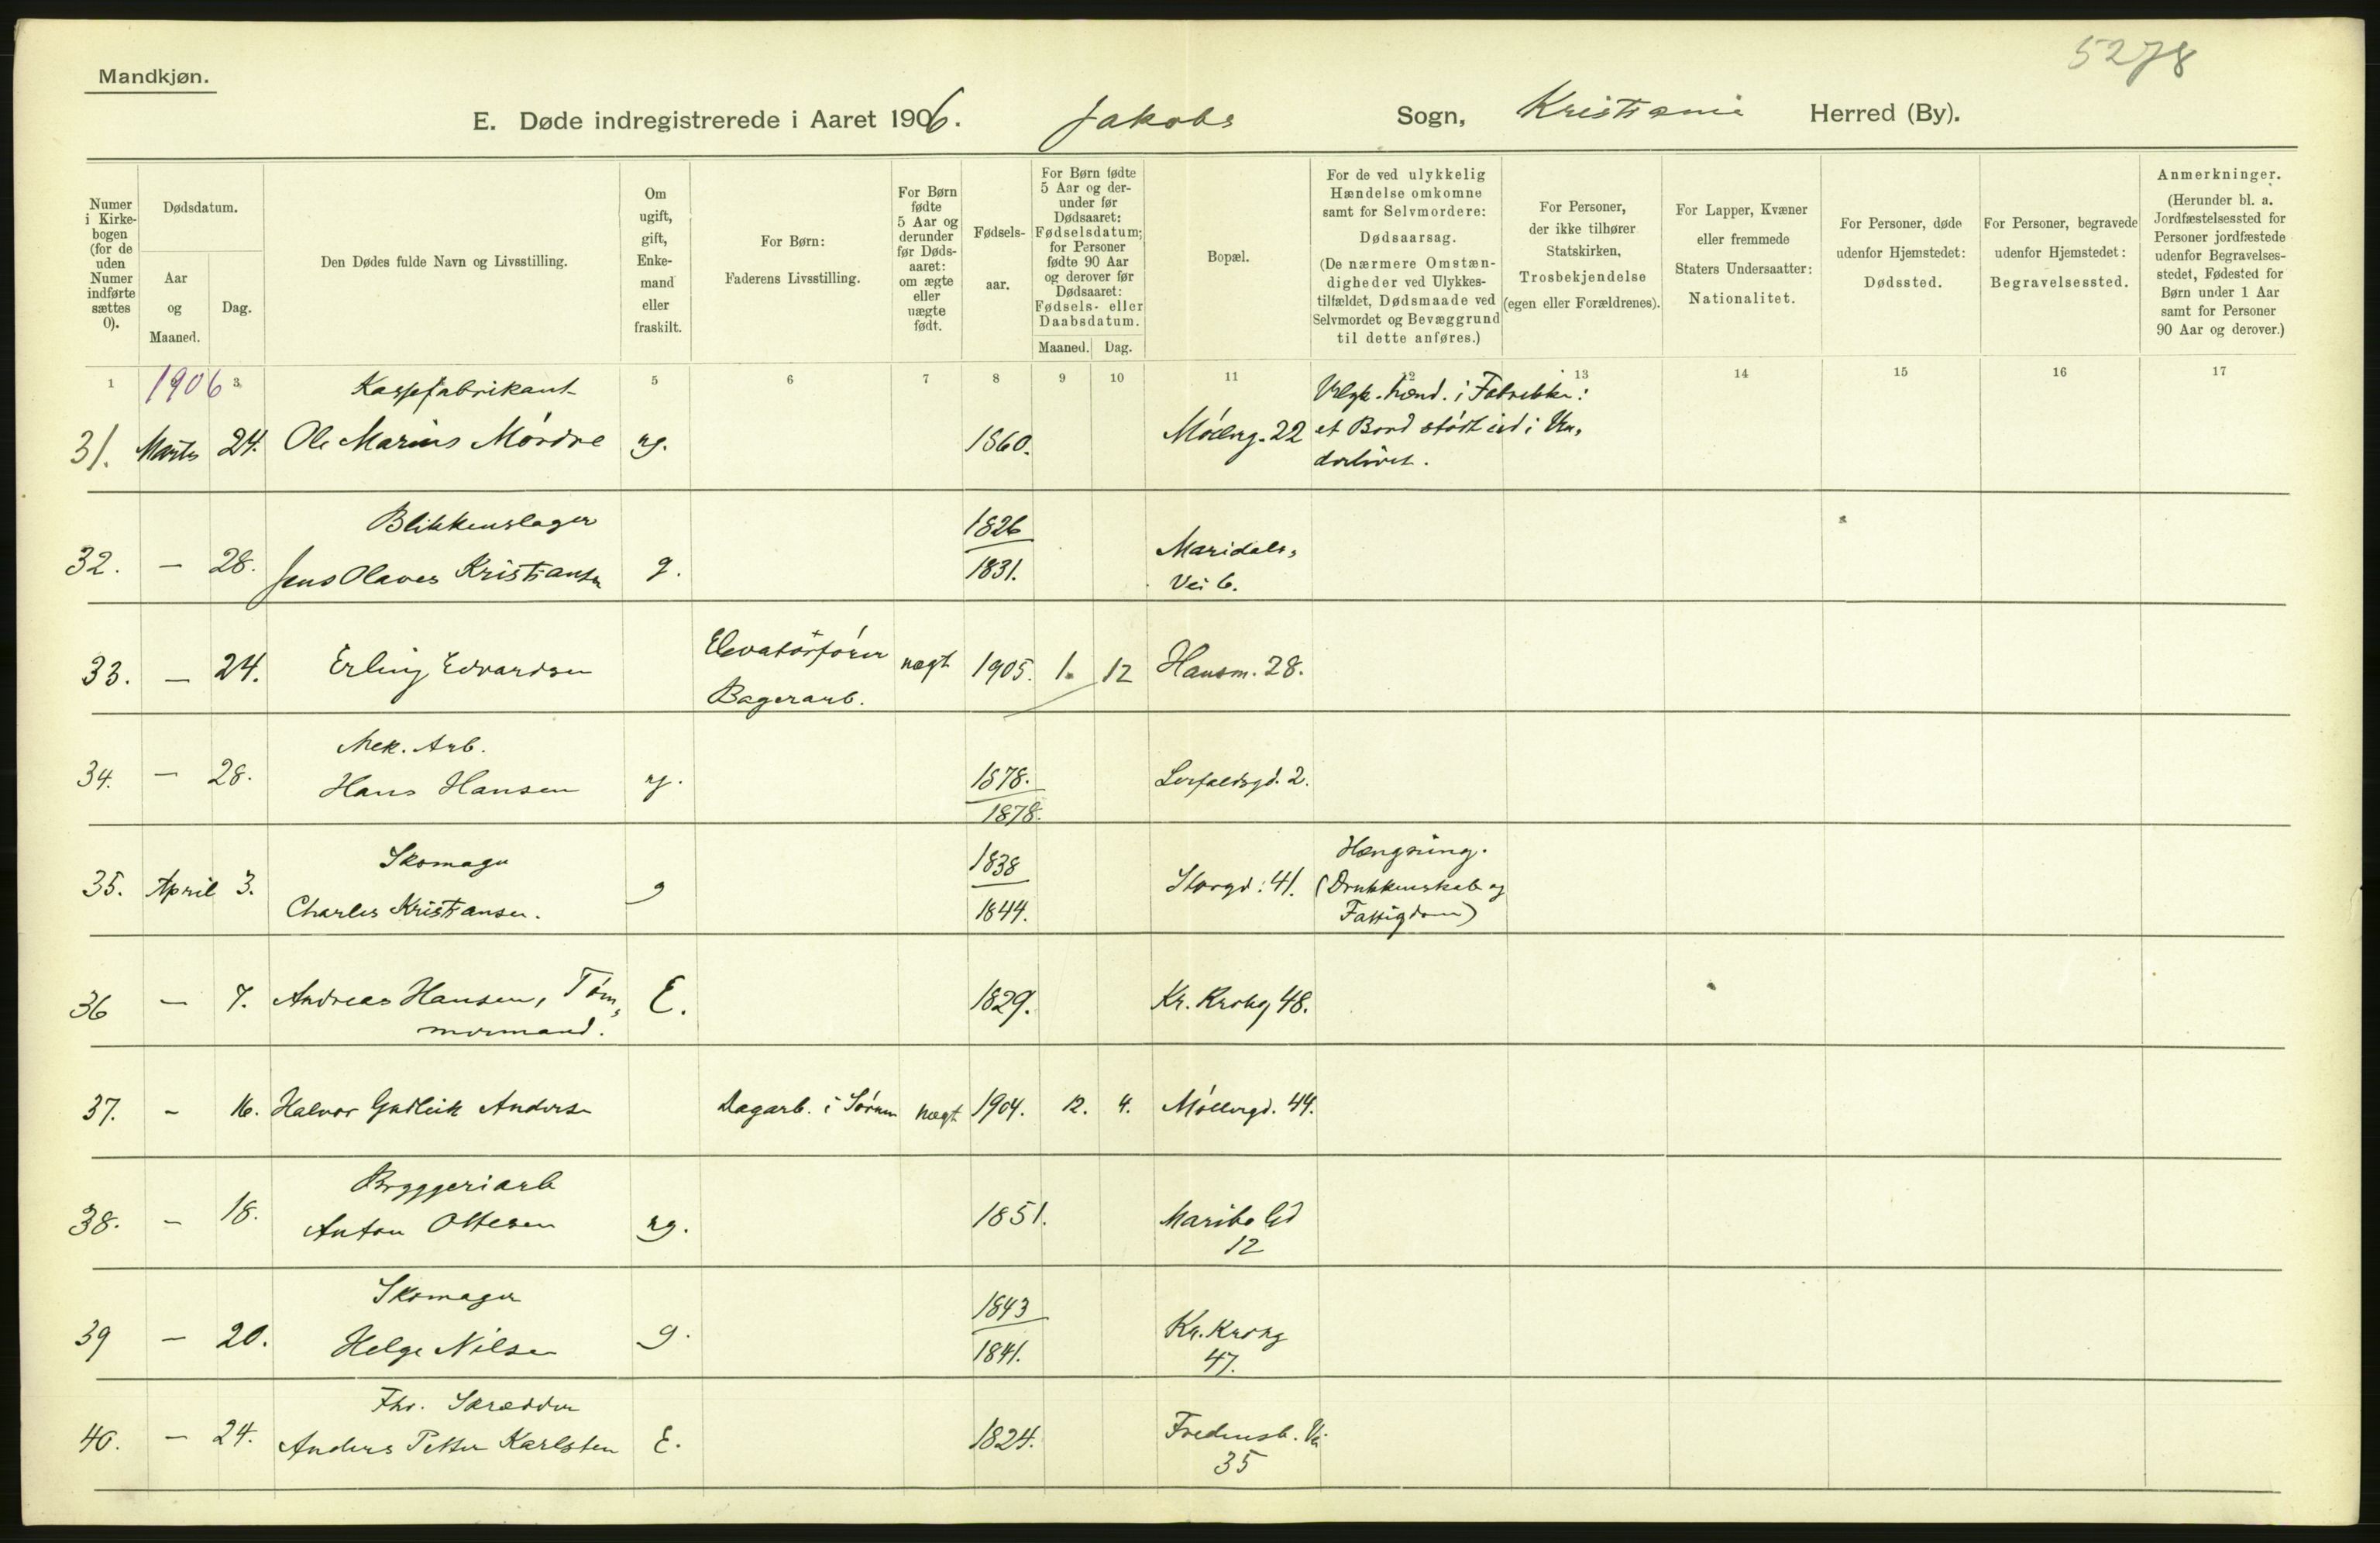 5278
Mandkjøn.
E. Døde indregistrerede i Aaret 1906. Jakobs Sogn, Kristiania Herred (By).
Numer i Kirkebogen (for de uden Numer indførte sættes 0).
Dødsdatum.
Aar og Maaned.
Dag.
Den Dødes fulde Navn og Livsstilling.
Om ugift, gift, Enkemand eller fraskilt.
For Børn: Faderens Livsstilling.
For Børn fødte 5 Aar og derunder før Dødsaaret: om ægte eller uægte født.
Fødselsaar.
For Børn fødte 5 Aar og derunder før Dødsaaret: Fødselsdatum; for Personer fødte 90 Aar og derover før Dødsaaret: Fødsels- eller Daabsdatum.
Maaned. Dag.
Bopæl.
For de ved ulykkelig Hændelse omkomne samt for Selvmordere: Dødsaarsag. (De nærmere Omstændigheder ved Ulykkestilfældet, Dødsmaade ved Selvmordet og Bevæggrund til dette anføres.)
For Personer, der ikke tilhører Statskirken, Trosbekjendelse (egen eller Forældrenes).
For Lapper, Kvæner eller fremmede Staters Undersaatter: Nationalitet.
For Personer, døde udenfor Hjemstedet: Dødssted.
For Personer, begravede udenfor Hjemstedet: Begravelsessted.
Anmerkninger. (Herunder bl. a. Jordfæstelsessted for Personer jordfæstede udenfor Begravelsesstedet, Fødested for Børn under 1 Aar samt for Personer 90 Aar og derover.)
1 3 5 6 7 8 9 10 11 12 13 14 15 16 17
1906
Kassefabrikant
31. Marts 24. Ole Marius Mórdre ug. 1860. Móllerg. 22
Ulyk. hænd. i Fabrikken:
et Bord stódt ind i Un-
derlivet.
Blikkenslager
32. — 28. Jens Olaves Kristiansen g. 1826 1831. Maridals-
Vei 6.
Elevatórfórer
33. — 24. Erling Edvardsen uægt 1905. 1. 12 Hausm. 28.
Bagerarb.
Mek. Arb.
34. — 28. Hans Hansen ug. 1878. 1878. Lerfaldsgd. 2.
Skomager
35. April 3. Charles Kristiansen. g 1838 1844. Storgd: 41.
Hængning.
(Drukkenskab og
Fattigdom)
36 — 7. Andreas Hansen, Tóm-
mermand. E. 1829. Kr. Krohg 48.
37. - 16. Halvor Gudleik Andersen Dagarb. i Sórum uægt 1904. 12. 4. Móllergd. 44.
Bryggeriarb
38. - 18. Anton Ottesen ug. 1851. Maribo Gd
12
Skomager
39 — 20. Helge Nilsen g. 1843 1841. Kr. Krohg
47.
Fhv. Skrædder
40. — 24. Anders Petter Karlsten E. 1824. Fredensb. Vei
35